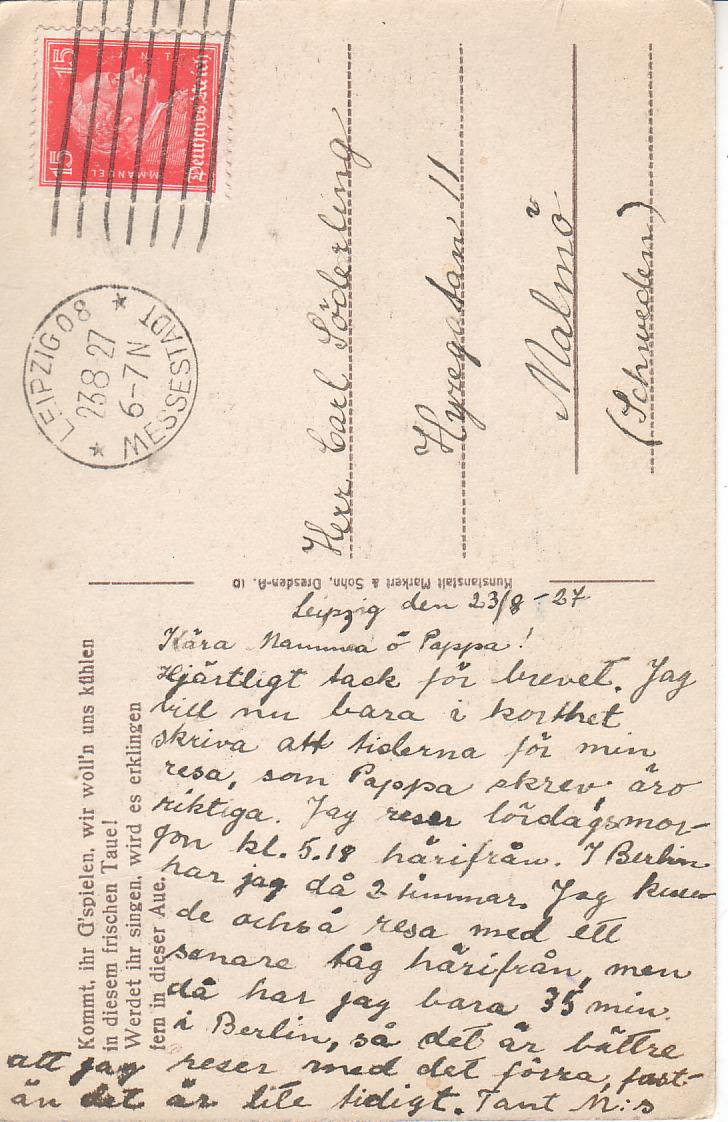 15 15
Deutsches Reich
IMMANUEL
LEIPZIG 08
23 8 27
6-7 N
MESSESTADT
Herr Carl Söderling
11
Malmö
(Schweden)
Kunstanstalt Markert & Sohn, Dresden-A. 10
Kommt, ihr G'spielen, wir woll'n uns kühlen
in diesem frischen Taue!
Werdet ihr singen, wird es erklingen
fern in dieser Aue.
Leipzig den 23/8 - 27
Kära Mamma o Pappa!
Hjärtligt tack för brevet. Jag
vill nu bara i korthet
skriva att tiderna för min
resa, som Pappa skrev äro
riktiga. Jag reser lördagsmor-
gon kl. 5.18 härifrån. I Berlin
har jag då 2 timmar. Jag kun-
de också resa med ett
senare tåg härifrån, men
då har jag bara 35 min.
i Berlin, så det är bättre
att jag reser med det förra, fast-
än det är lite tidigt. Tant M:s